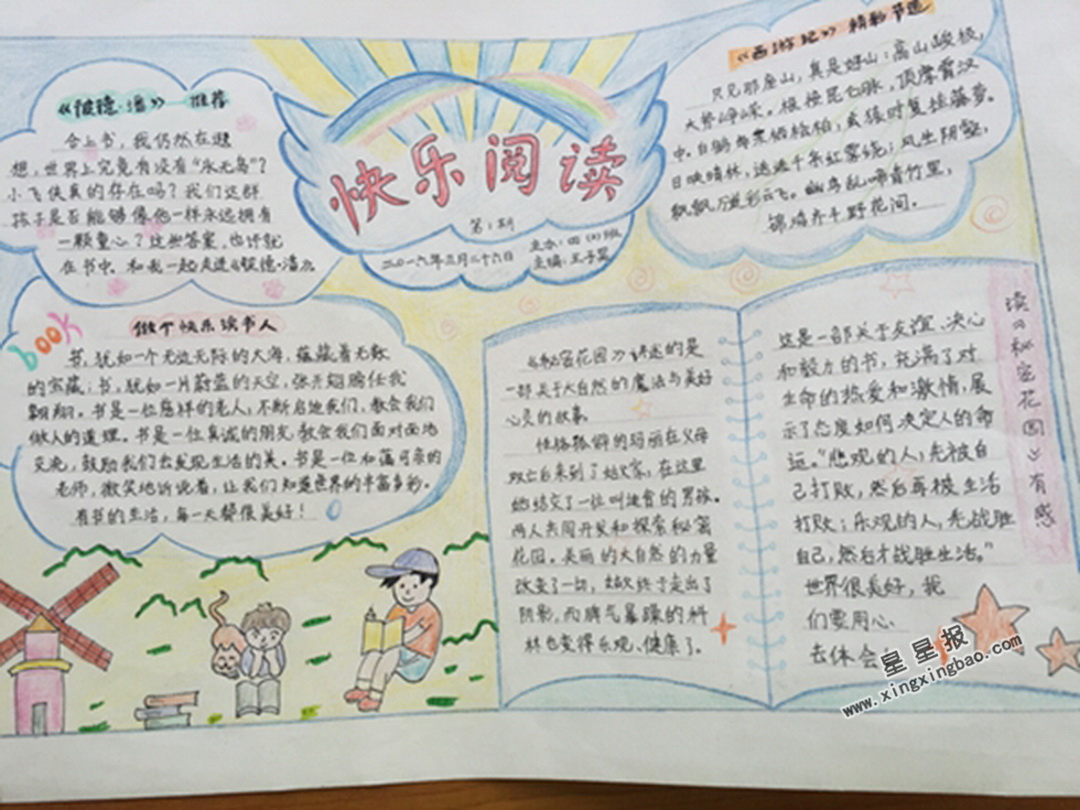 快乐阅读
第1期
二〇一六年三月二十六日
主办：四（4）班
主编：王子
《彼德·潘》推荐
合上书，我仍然在遐
想，世界上究竟有没有“永无岛”？
小飞侠真的存在吗？我们这群
孩子是否能够像他一样永远拥有
一颗童心？这些答案，也许就
在书中。和我一起走进《彼德·潘》。
《西游记》精彩节选
只见那座山，真是好山：高山峻极，
大势峥嵘。根接昆仑脉，顶摩霄汉
中。白鹤每来栖桧柏，玄猿时复挂藤萝。
日映晴林，迭迭千条红雾绕；风生阴壑，
飘飘万道彩云飞。幽鸟乱啼青竹里，
锦鸡齐斗野花间。
book
做个快乐读书人
书，犹如一个无边无际的大海，蕴藏着无数
的宝藏；书，犹如一片蔚蓝的天空，张开翅膀任我
翱翔。书是一位慈祥的老人，不断启迪我们，教会我们
做人的道理。书是一位真诚的朋友，教会我们面对面地
交流，鼓励我们去发现生活的美。书是一位和蔼可亲的
老师，微笑地诉说着，让我们知道世界的丰富多彩。
有书的生活，每一天都很美好！
《秘密花园》讲述的是
一部关于大自然的魔法与美好
心灵的故事。
性格孤僻的玛丽在父母
双亡后来到了姑父家，在这里
她结交了一位叫迪肯的男孩。
两人共同开发和探索秘密
花园。美丽的大自然的力量
改变了一切，姑父终于走出了
阴影，而脾气暴躁的科
林也变得乐观、健康了。
读《秘密花园》有感
这是一部关于友谊、决心
和毅力的书，充满了对
生命的热爱和激情，展
示了态度如何决定人的命
运。“悲观的人，先被自
己打败，然后再被生活
打败；乐观的人，先战胜
自己，然后才战胜生活。”
世界很美好，我
们要用心
去体会
星星报
www.xingxingbao.com